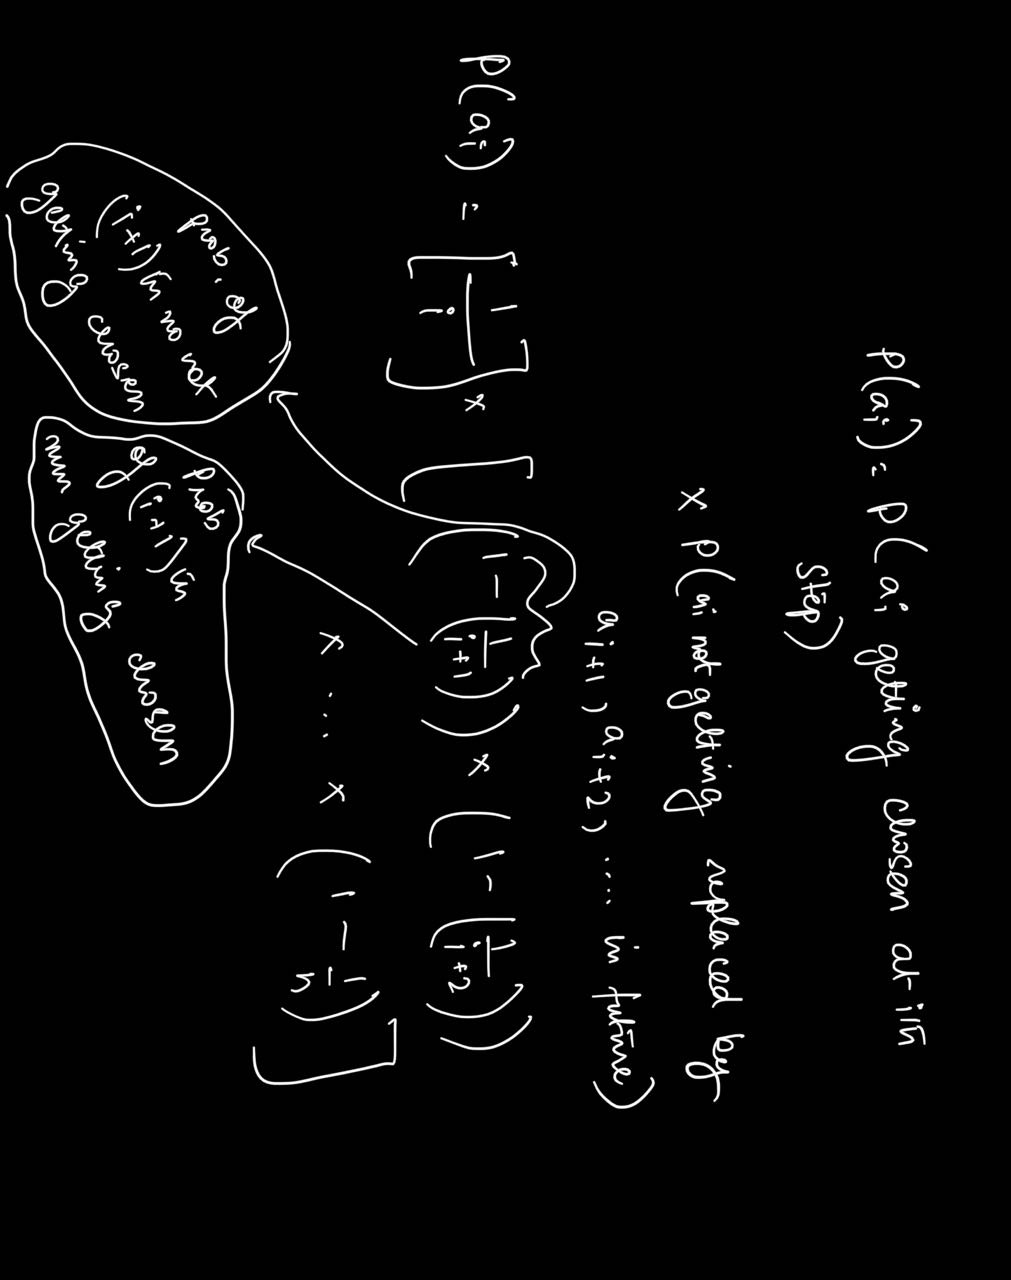 P(ai) = P( ai getting chosen at ith
step)
x P( ai not getting replaced by
ai+1, ai+2, .... in future)
P(ai) = [1/i] x [ (1-(1/i+1)) x (1-(1/i+2))
x ... x (1 - 1/n) ]
prob. of
(i+1)th no not
getting chosen
Prob
of (i+1)th
num getting chosen